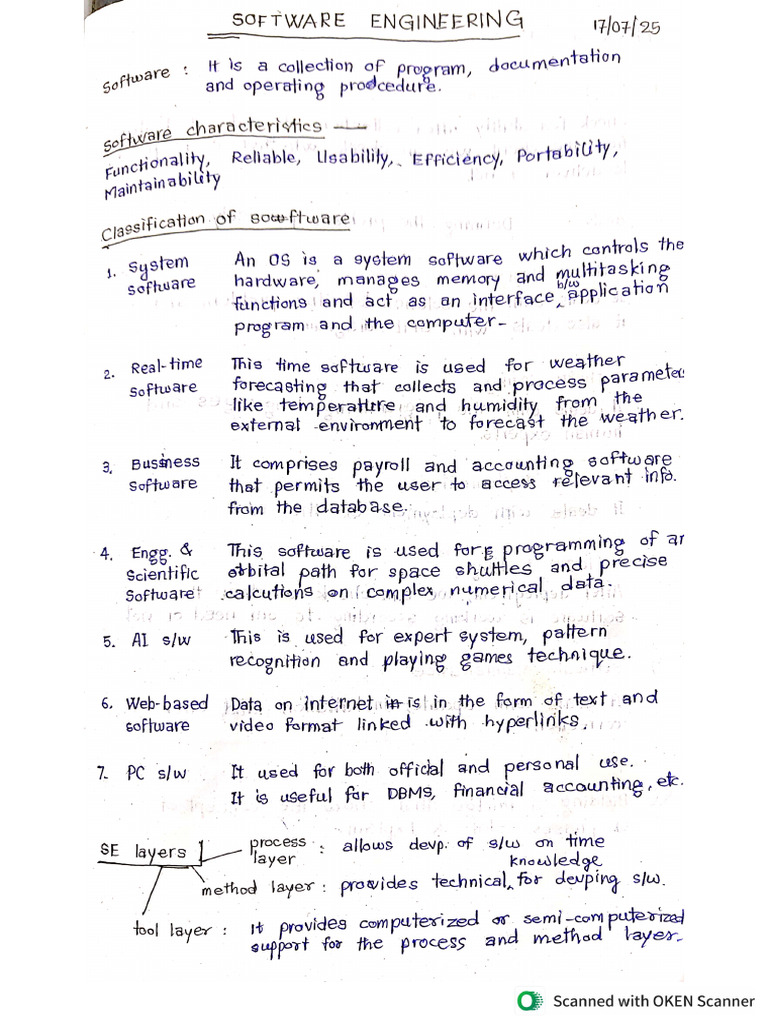 SOFTWARE ENGINEERING 17/07/25
Software : It is a collection of program, documentation
and operating prodcedure.
Software characteristics —
Functionality, Reliable, Usability, Efficiency, Portability,
Maintainability
Classification of sowftware
1. System An OS is a system software which controls the
software hardware, manages memory and multitasking
functions and act as an interface b/w application
program and the computer-
2. Real-time This time software is used for weather
software forecasting that collects and process parameters
like temperature and humidity from the
external environment to forecast the weather.
3. Business It comprises payroll and accounting software
software that permits the user to access relevant info.
from the database.
4. Engg. & This software is used for programming of an
Scientific orbital path for space shuttles and precise
Software calcutions on complex numerical data.
5. AI s/w This is used for expert system, pattern
recognition and playing games technique.
6. Web-based Data on internet in is in the form of text and
software video format linked with hyperlinks.
7. PC s/w It used for both official and personal use.
It is useful for DBMS, financial accounting, etc.
SE layers process : allows devp. of s/w on time
layer
method layer : provides technical knowledge for devping s/w.
tool layer : It provides computerized or semi-computerized
support for the process and method layer.
Scanned with OKEN Scanner